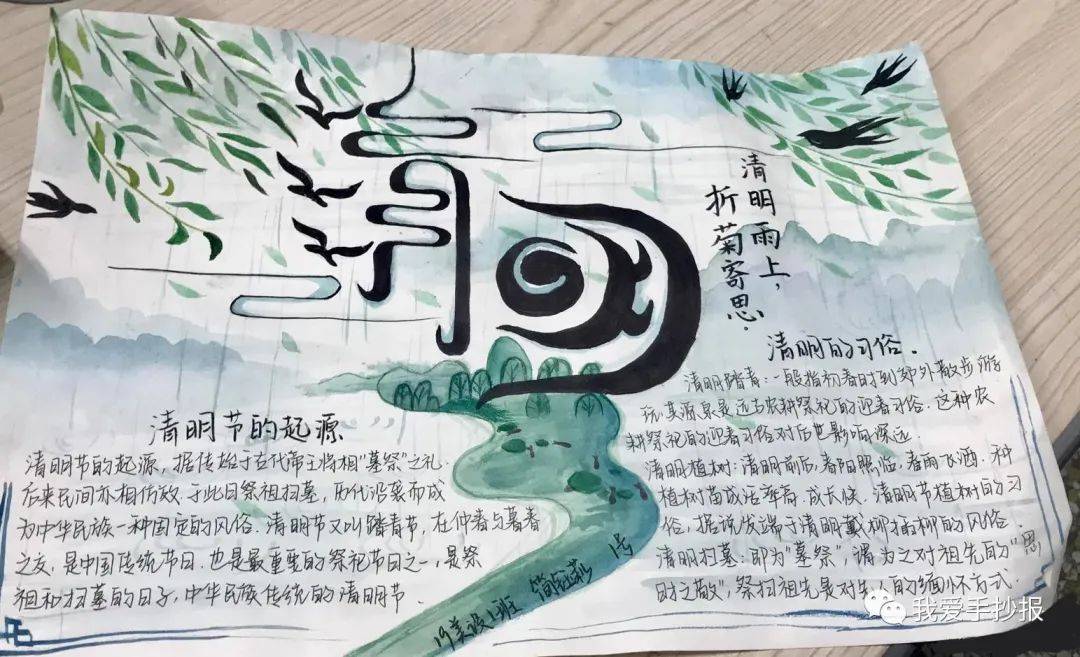 清明
清明雨上，
折菊寄思.
清明节的起源
清明节的起源，据传始于古代帝王将相"墓祭"之礼.
后来民间亦相仿效.于此日祭祖扫墓，历代沿袭而成
为中华民族一种固定的风俗.清明节又叫踏青节，在仲春与暮春
之交，是中国传统节日.也是最重要的祭祀节日之一，是祭
祖和扫墓的日子，中华民族传统的清明节
清明的习俗.
清明踏青：一般指初春时到郊外散步游
玩其源泉是远古农耕祭祀的迎春习俗.这种农
耕祭祀的迎春习俗对后世影响深远
清明植树：清明前后，春阳照临，春雨飞洒.种
植树苗成活率高，成长快.清明节植树的习
俗，据说发端于清明戴柳插柳的风俗.
清明扫墓：即为"墓祭"，谓为之对祖先的"思
时之敬"，祭扫祖先是对先人的缅怀方式.
19美设1班 1号
我爱手抄报